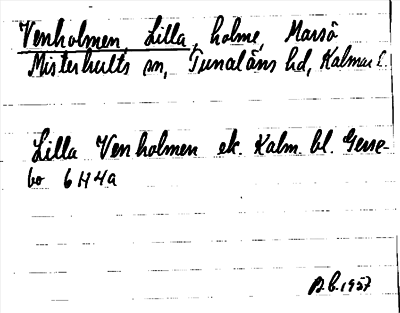 Venholmen, Lilla, holme, Marsö
Misterhults sn, Tunaläns hd, Kalmar l.
Lilla Venholmen ek. Kalm. bl. Gerse-
bo 6H4a
1957